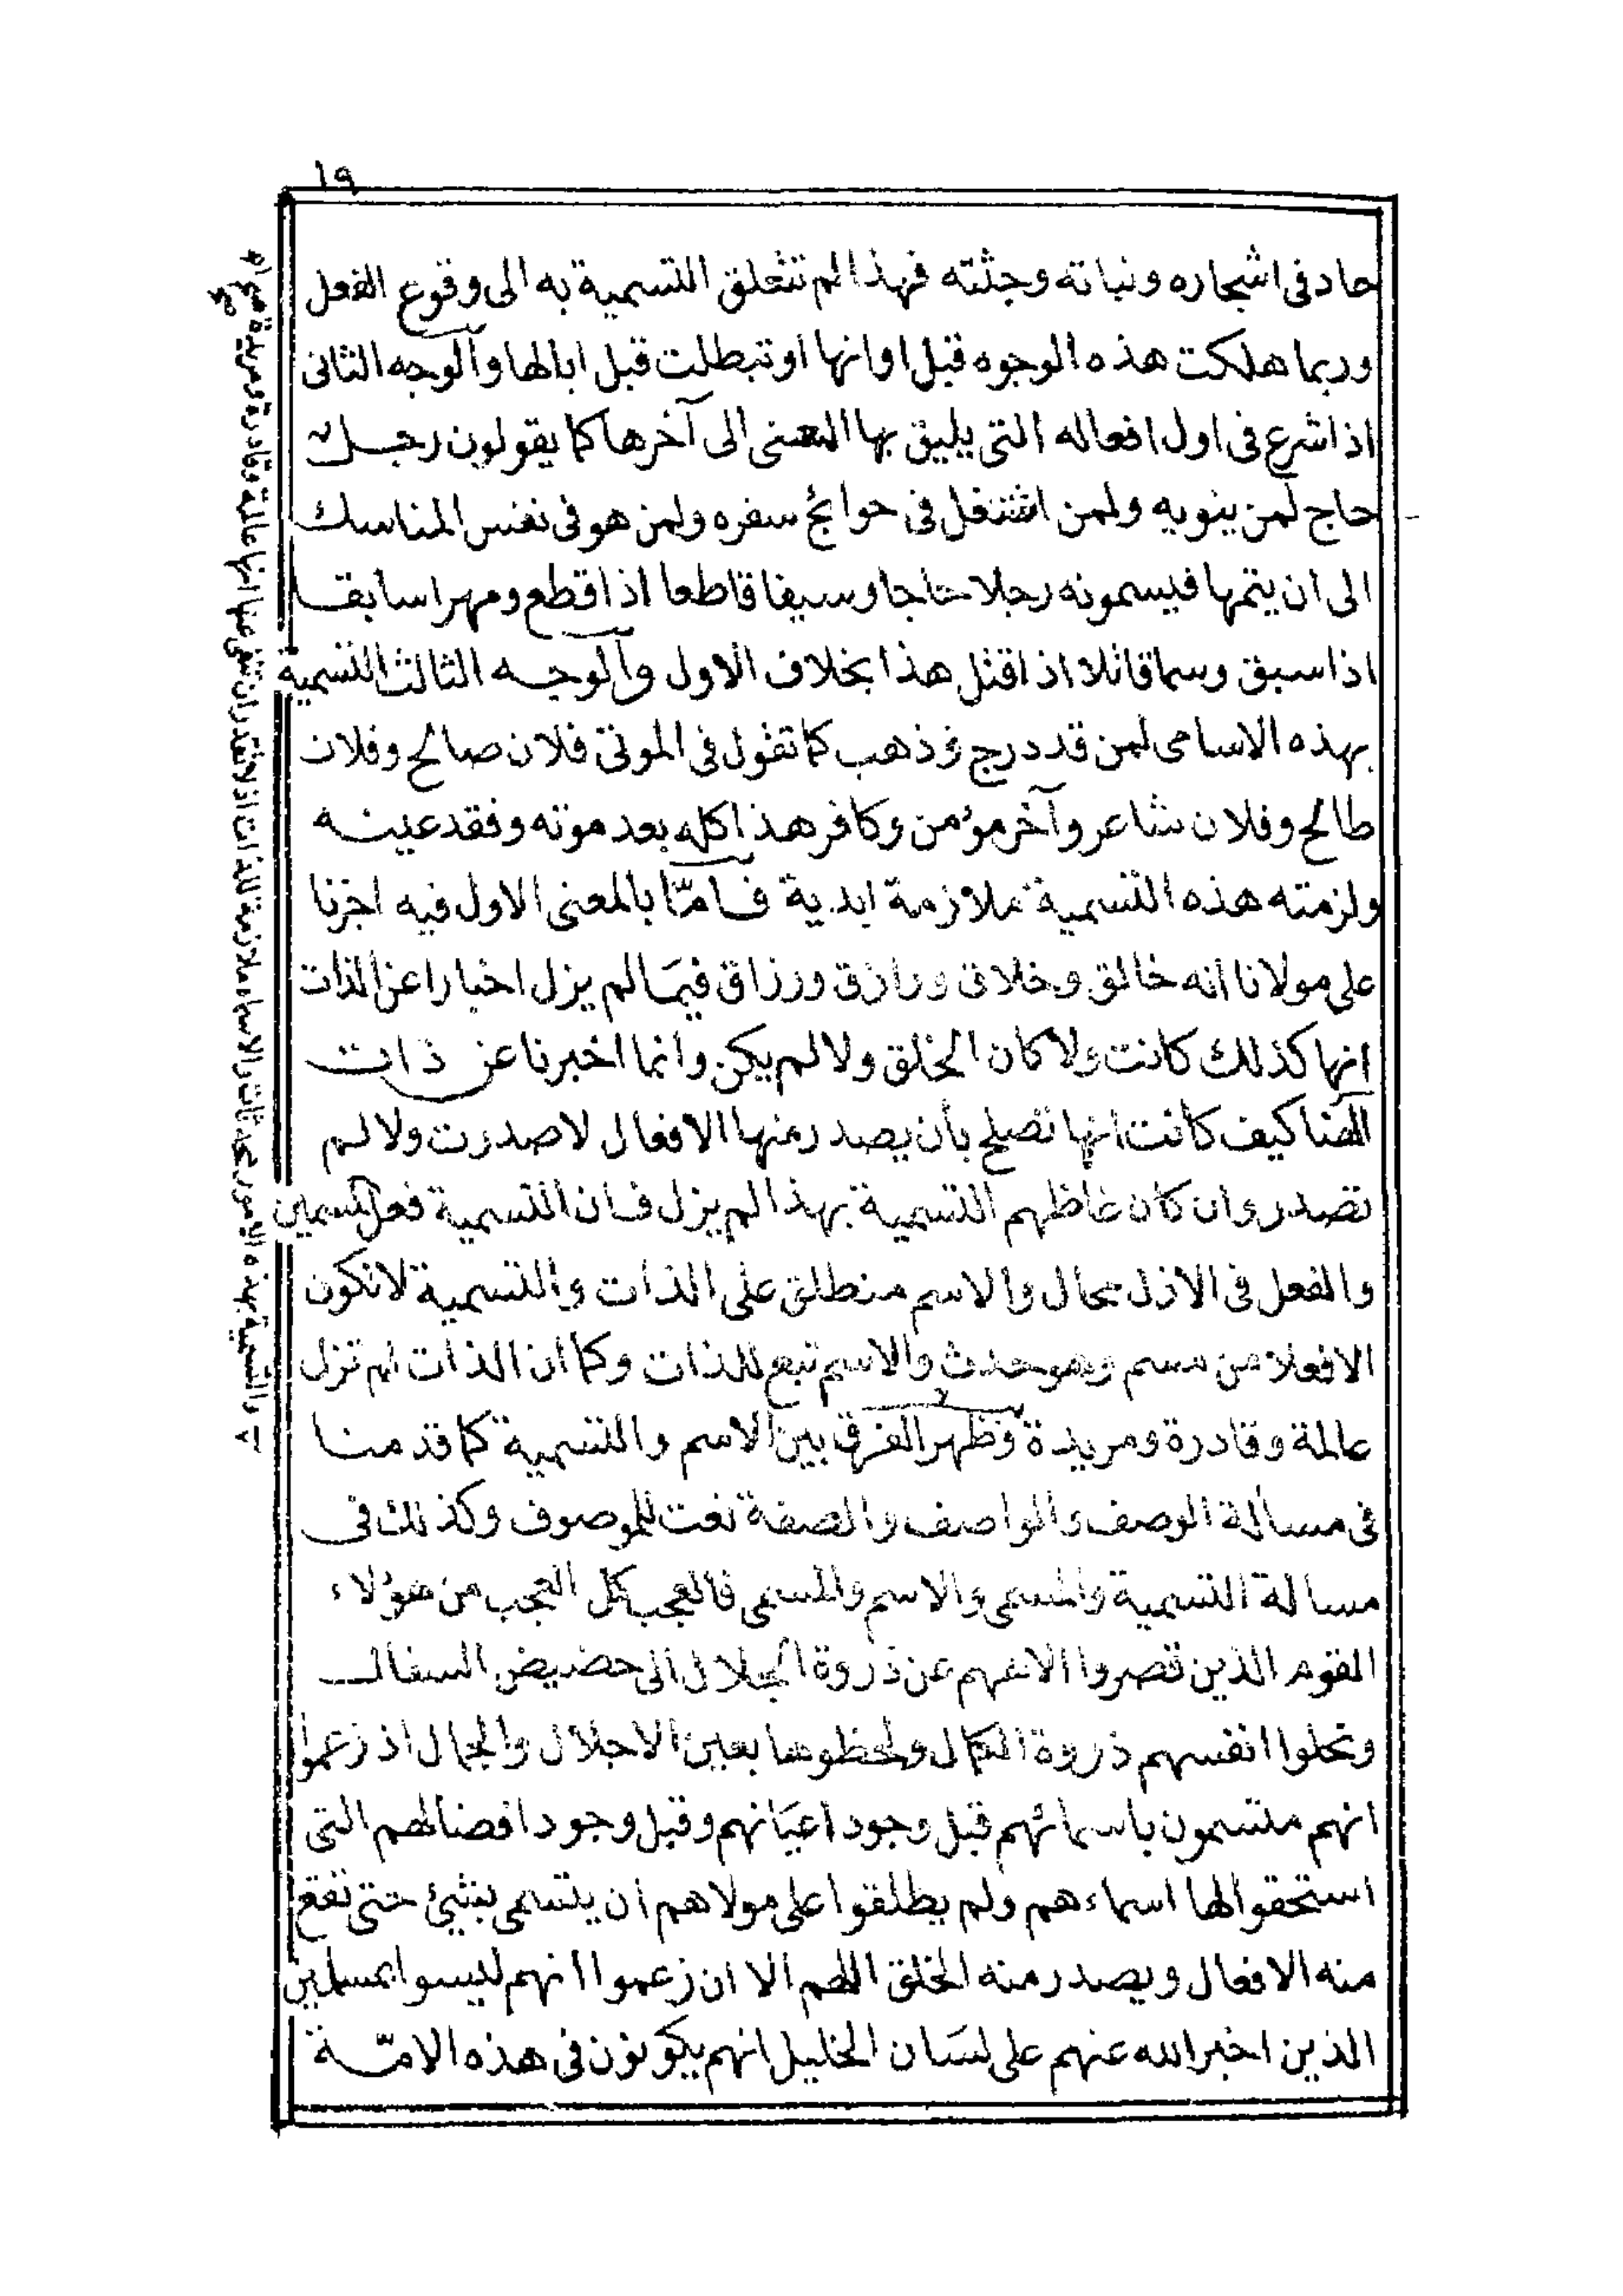 ١٩
حاد فى اشجاره ونباته وجثته فهذا لم تتعلق التسمية به الى وقوع الفعل
وربما هلكت هذه الوجوه قبل اوانها او تبطلت قبل ابالها والوجه الثانى
اذا شرع فى اول افعاله التى يليق بها المعنى الى آخرها كما يقولون رجل
حاج لمن ينويه ولمن اشتغل فى حوائج سفره ولمن هو فى نفس المناسك
الى ان يتمها فيسمونه رجلا حاجا وسيفا قاطعا اذا قطع ومهرا سابقا
اذا سبق وسما قاتلا اذا قتل هذا بخلاف الاول والوجه الثالث التسمية
بهذه الاسامى لمن قد درج وذهب كما تقول فى الموتى فلان صالح وفلان
طالح وفلان شاعر وآخر مؤمن وكافر هذا كله بعد موته وفقد عينه
ولزمته هذه التسمية ملازمة ابدية فامّا بالمعنى الاول فيه اجزنا
على مولانا انه خالق وخلاق ورازق ورزاق فيما لم يزل اخبارا عن الذات
انها كذلك كانت ولا كان الخلق ولا لم يكن وانما اخبرنا عن ذات
الهنا كيف كانت انها تصلح بأن يصدر منها الافعال لا صدرت ولا لم
تصدر وان كان غاظهم التسمية بهذا لم يزل فان التسمية فعل المسمين
والفعل فى الازل محال والاسم منطلق على الذات والتسمية لا تكون
الا فعلا من مسم وهو حدث والاسم تبع للذات وكما ان الذات لم تزل
عالمة وقادرة ومريدة وظهر الفرق بين الاسم والتسمية كما قدمنا
فى مسألة الوصف والواصف والصفة نعت للموصوف وكذلك فى
مسالة التسمية والمسمى والاسم والمسمى فالعجب كل العجب من هؤلاء
القوم الذين قصروا الاههم عن ذروة الجلال الى حضيض السفال
ونحلوا انفسهم ذروة الكمال ولحظوها بعين الاجلال والجمال اذ زعموا
انهم متسمون باسمائهم قبل وجود اعيانهم وقبل وجود افضالهم التى
استحقوا لها اسماءهم ولم يطلقوا على مولاهم ان يتسمى بشئ حتى تقع
منه الافعال ويصدر منه الخلق اللهم الا ان زعموا انهم ليسوا بمسلمين
الذين اخبر الله عنهم على لسان الخليل انهم يكونون فى هذه الامّة
والتسمية بهذه الامور محدثات والاسماء ملازمة للذات اذ لا تقدر ان تنفى عنها انها عالمة وقادرة ومريدة